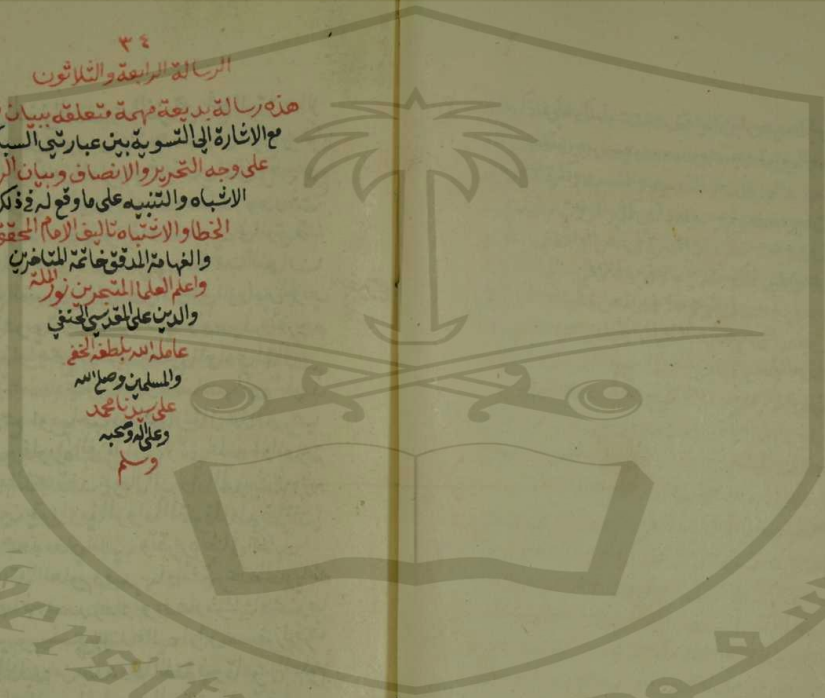 ٣٤
الرسالة الرابعة والثلاثون
هذه رسالة بديعة مهمة متعلقة ببيان
مع الاشارة الى التسوية بين عبارتي
على وجه التحرير والانصاف وبيان
الاشباه والتنبيه على ما وقع له في ذلك
الخطا والاشتباه تاليف الامام المحقق
والفهامة المدقق خاتمة المتاخرين
واعلم العلما المتبحرين نور الملة
والدين على المقدسي الحنفي
عامله الله بلطفه الخفي
والمسلمين وصلى الله
على سيدنا محمد
وعلى اله وصحبه
وسلم